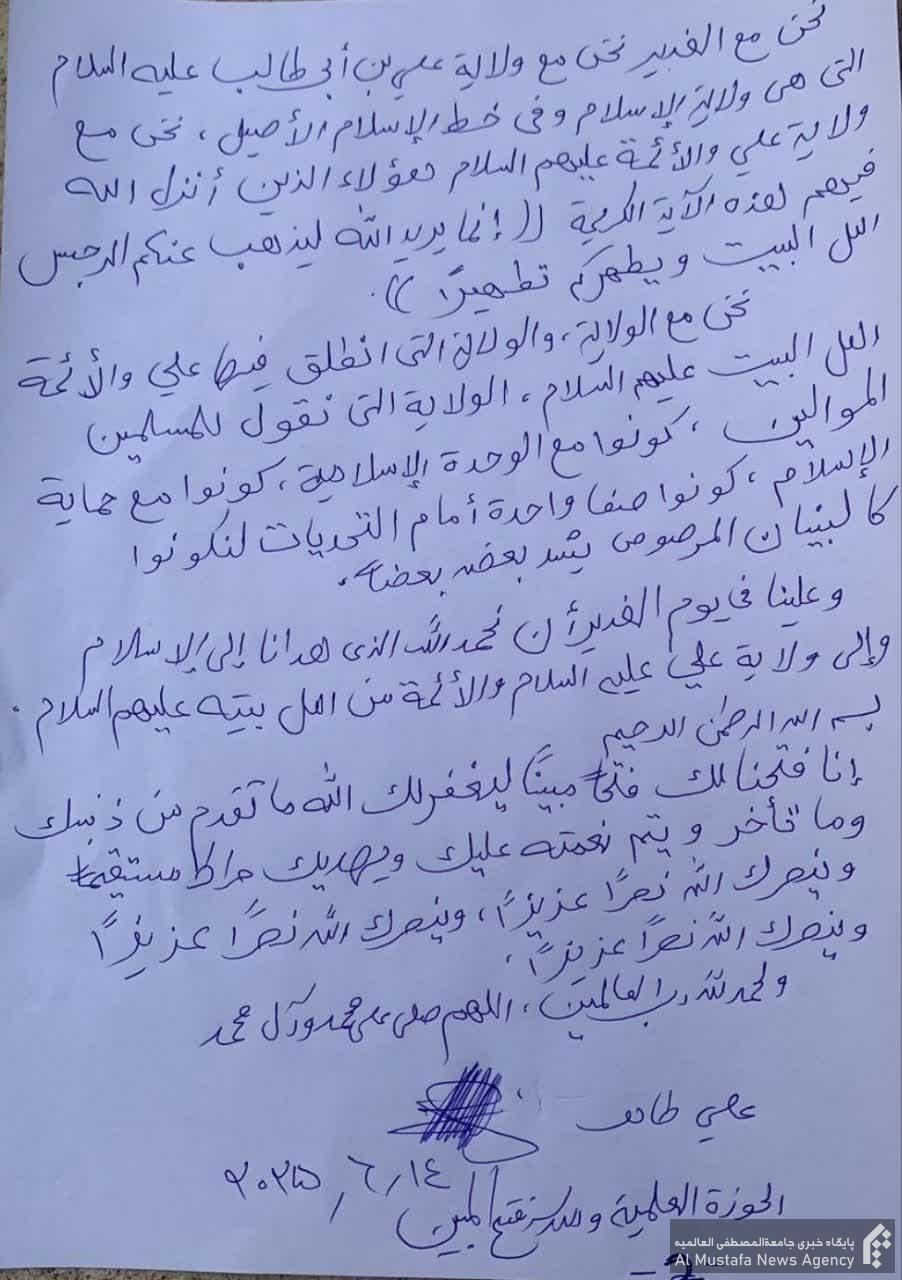 نحن مع الغدير نحن مع ولاية علي بن أبي طالب عليه السلام
التي هي ولاية الإسلام وفي خط الإسلام الأصيل، نحن مع
ولاية علي والأئمة عليهم السلام هؤلاء الذين أنزل الله
فيهم هذه الآية الكريمة ((إنما يريد الله ليذهب عنكم الرجس
اهل البيت ويطهركم تطهيرًا)).
نحن مع الولاية، والولاية التي انطلق فيها علي والأئمة
اهل البيت عليهم السلام، الولاية التي تقول للمسلمين
الموالين، كونوا مع الوحدة الإسلامية، كونوا مع حماية
الإسلام، كونوا صفا واحدة أمام التحديات لتكونوا
كالبنيان المرصوص يشد بعضه بعضاً.
وعلينا في يوم الغدير أن نحمد الله الذي هدانا إلى الإسلام
وإلى ولاية علي عليه السلام والأئمة من اهل بيته عليهم السلام.
بسم الله الرحمن الرحيم
إنا فتحنا لك فتحاً مبينًا ليغفر لك الله ما تقدم من ذنبك
وما تأخر ويتم نعمته عليك ويهديك صراطا مستقيما
وينصرك الله نصرًا عزيزًا، وينصرك الله نصرًا عزيزًا
وينصرك الله نصرًا عزيزًا.
ولحمد لله رب العالمين، اللهم صلى على محمد وآل محمد
علي
١٤/٦/٢٠٢٥
الحوزة العلمية المبين
-2-
پایگاه خبری جامعةالمصطفی العالمیه
Al Mustafa News Agency